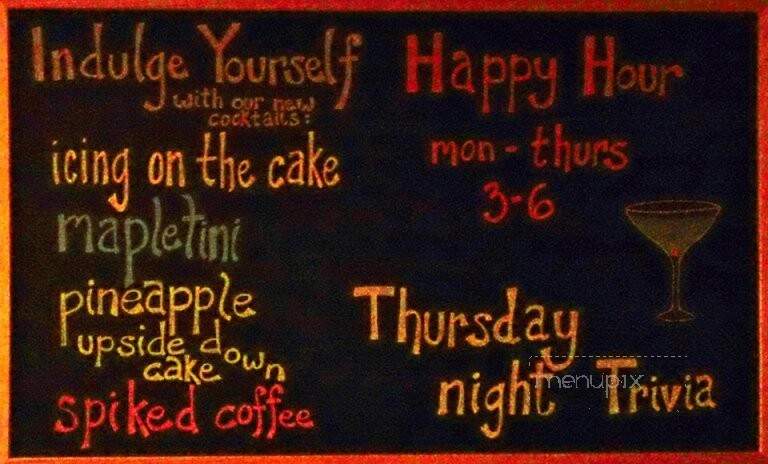 Indulge Yourself
with our new
cocktails:
icing on the cake
mapletini
pineapple
upside down
cake
spiked coffee
Happy Hour
mon - thurs
3-6
Thursday
night Trivia
menupix